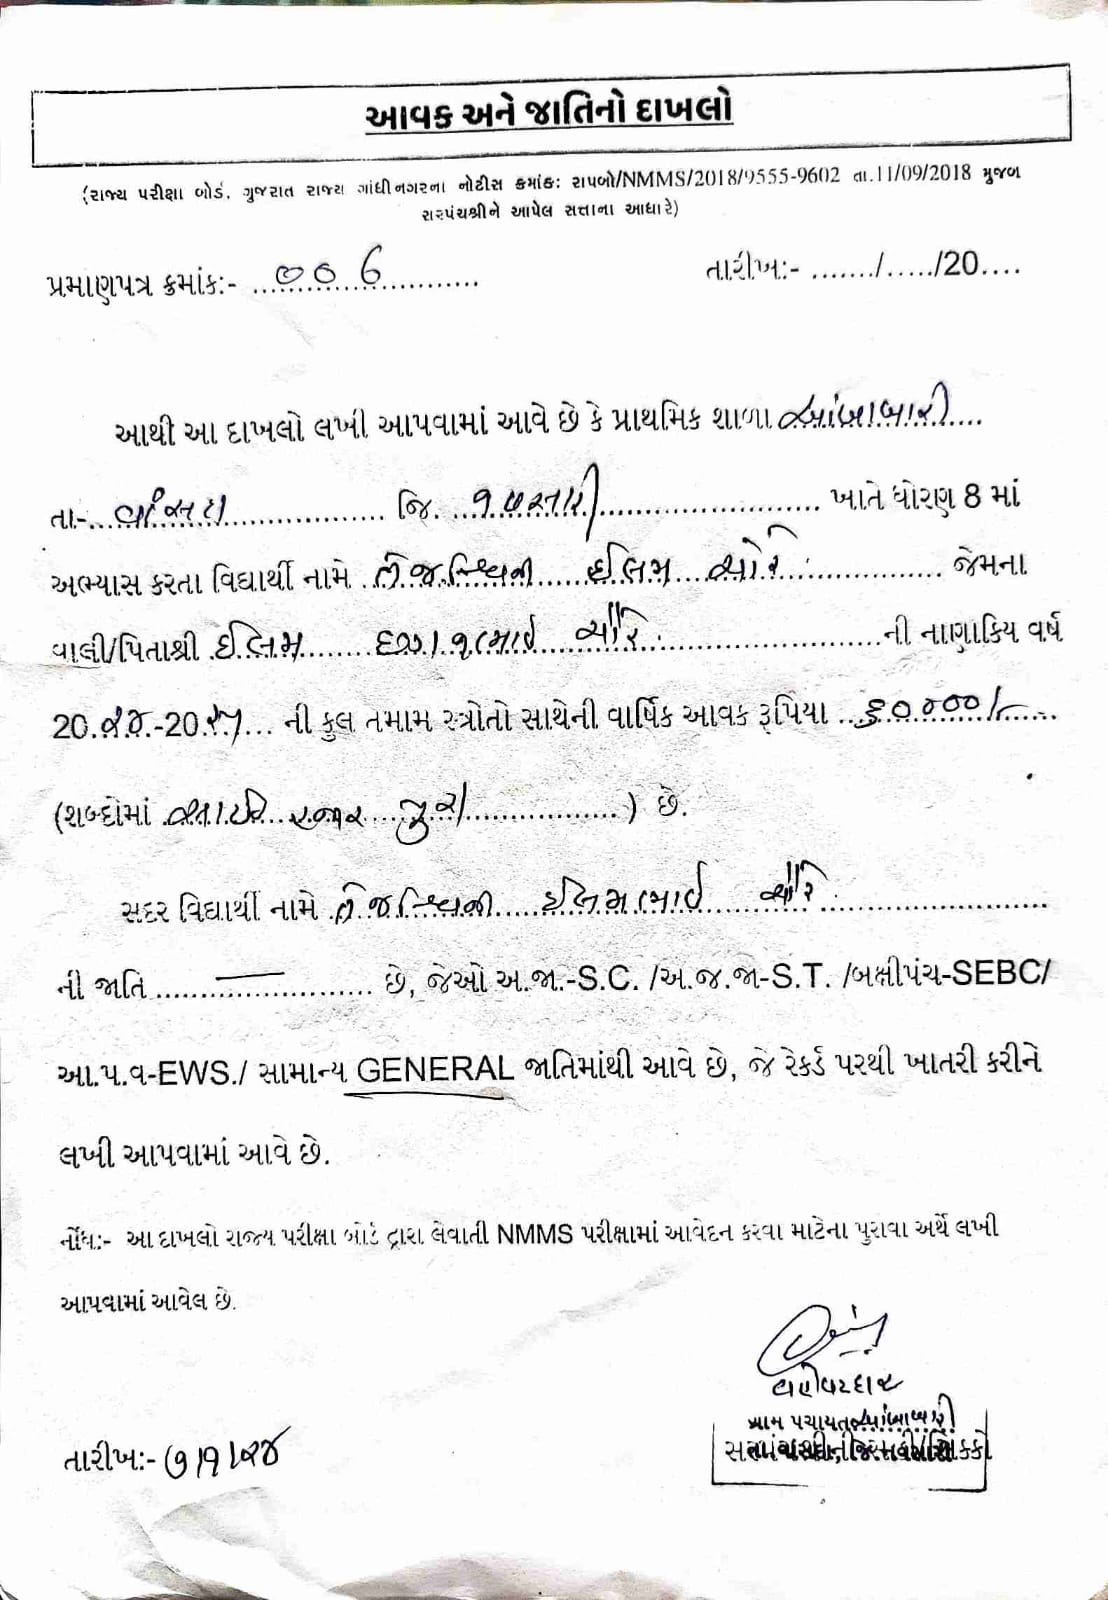 આવક અને જાતિનો દાખલો
(રાજ્ય પરીક્ષા બોર્ડ, ગુજરાત રાજ્ય ગાંધીનગરના નોટીસ ક્રમાંક: રાપબો/NMMS/2018/9555-9602 તા.11/09/2018 મુજબ
સરપંચશ્રીને આપેલ સત્તાના આધારે)
પ્રમાણપત્ર ક્રમાંક:- ....................... તારીખ:- ......./...../20....
આથી આ દાખલો લખી આપવામાં આવે છે કે પ્રાથમિક શાળા આંબાબારી
તા:- વાંસદા જિ. નવસારી ખાતે ધોરણ 8 માં
અભ્યાસ કરતા વિદ્યાર્થી નામે તેજસ્વિની જેમના
વાલી/પિતાશ્રી ની નાણાકિય વર્ષ
20.૨૪.-20.૨૫... ની કુલ તમામ સ્ત્રોતો સાથેની વાર્ષિક આવક રૂપિયા ..૬૦૦૦૦/-
(શબ્દોમાં સાઈઠ હજાર પુરા) છે.
સદર વિદ્યાર્થી નામે તેજસ્વિની
ની જાતિ ........................ છે, જેઓ અ.જા.-S.C. /અ.જ.જા-S.T. /બક્ષીપંચ-SEBC/
આ.પ.વ-EWS./ સામાન્ય GENERAL જાતિમાંથી આવે છે, જે રેકર્ડ પરથી ખાતરી કરીને
લખી આપવામાં આવે છે.
નોંધ:- આ દાખલો રાજ્ય પરીક્ષા બોર્ડ દ્વારા લેવાતી NMMS પરીક્ષામાં આવેદન કરવા માટેના પુરાવા અર્થે લખી
આપવામાં આવેલ છે.
વહીવટદાર
ગ્રામ પંચાયત આંબાબારી
તારીખ:- ૭/૧/૨૪